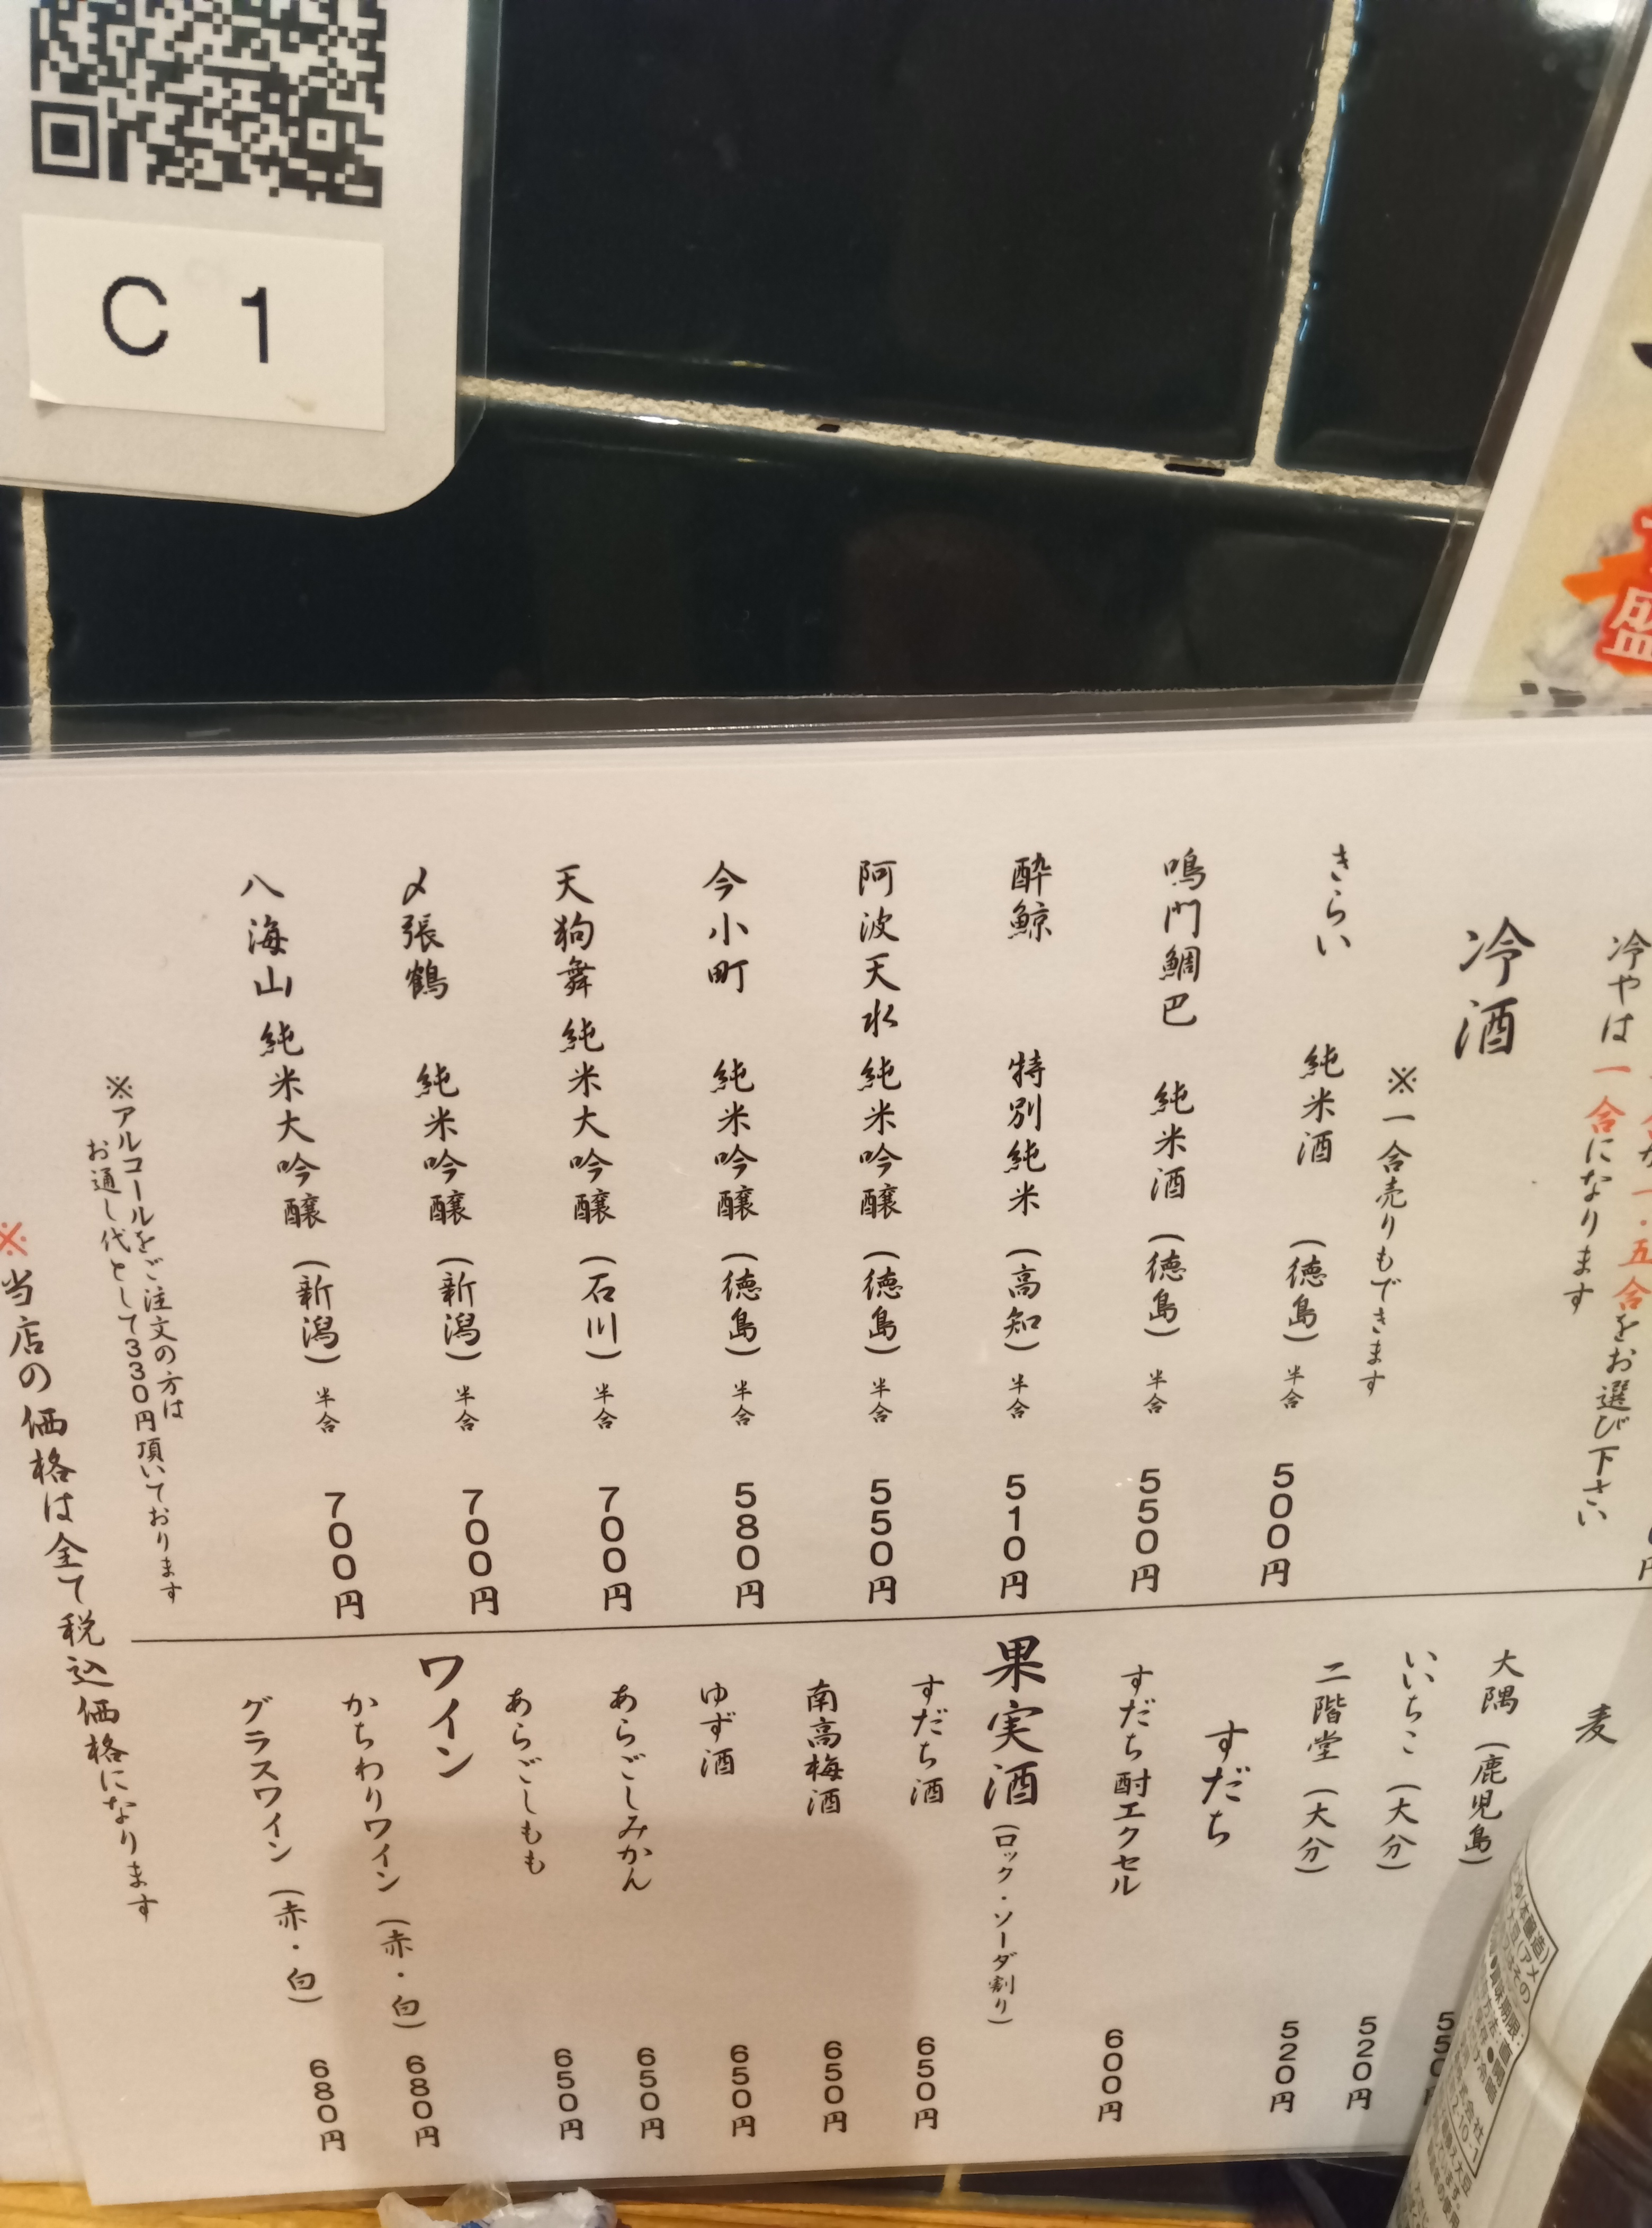 C 1
盛
一・五合をお選び下さい
冷やは一合になります
冷酒
※一合売りもできます
きらい 純米酒 (徳島) 半合 500円
鳴門鯛巴 純米酒 (徳島) 半合 550円
酔鯨 特別純米 (高知) 半合 510円
阿波天水 純米吟醸 (徳島) 半合 550円
今小町 純米吟醸 (徳島) 半合 580円
天狗舞 純米大吟醸 (石川) 半合 700円
〆張鶴 純米吟醸 (新潟) 半合 700円
八海山 純米大吟醸 (新潟) 半合 700円
※アルコールをご注文の方は
お通し代として330円頂いております
麦
大隅 (鹿児島) 550円
いいちこ (大分) 520円
二階堂 (大分) 520円
すだち
すだち酎エクセル 600円
果実酒 (ロック・ソーダ割り)
すだち酒 650円
南高梅酒 650円
ゆず酒 650円
あらごしみかん 650円
あらごしもも 650円
ワイン
かちわりワイン (赤・白) 680円
グラスワイン (赤・白) 680円
※当店の価格は全て税込価格になります